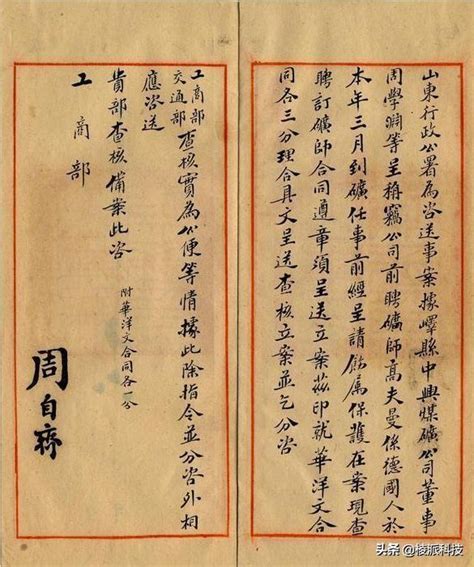 山東行政公署為咨送事案據嶧縣中興煤礦公司董事
周學淵等呈稱竊公司前聘礦師高夫曼係德國人於
本年三月到礦任事前經呈請飭屬保護在案現查
聘訂礦師合同遵章須呈送立案茲印就華洋文合
同各三分理合具文呈送查核立案並乞分咨
工商部
交通部
查核實為公便等情據此除指令並分咨外相
應咨送
貴部查核備案此咨
工商部
附華洋文合同各一分
周自齊
头条 @棱派科技